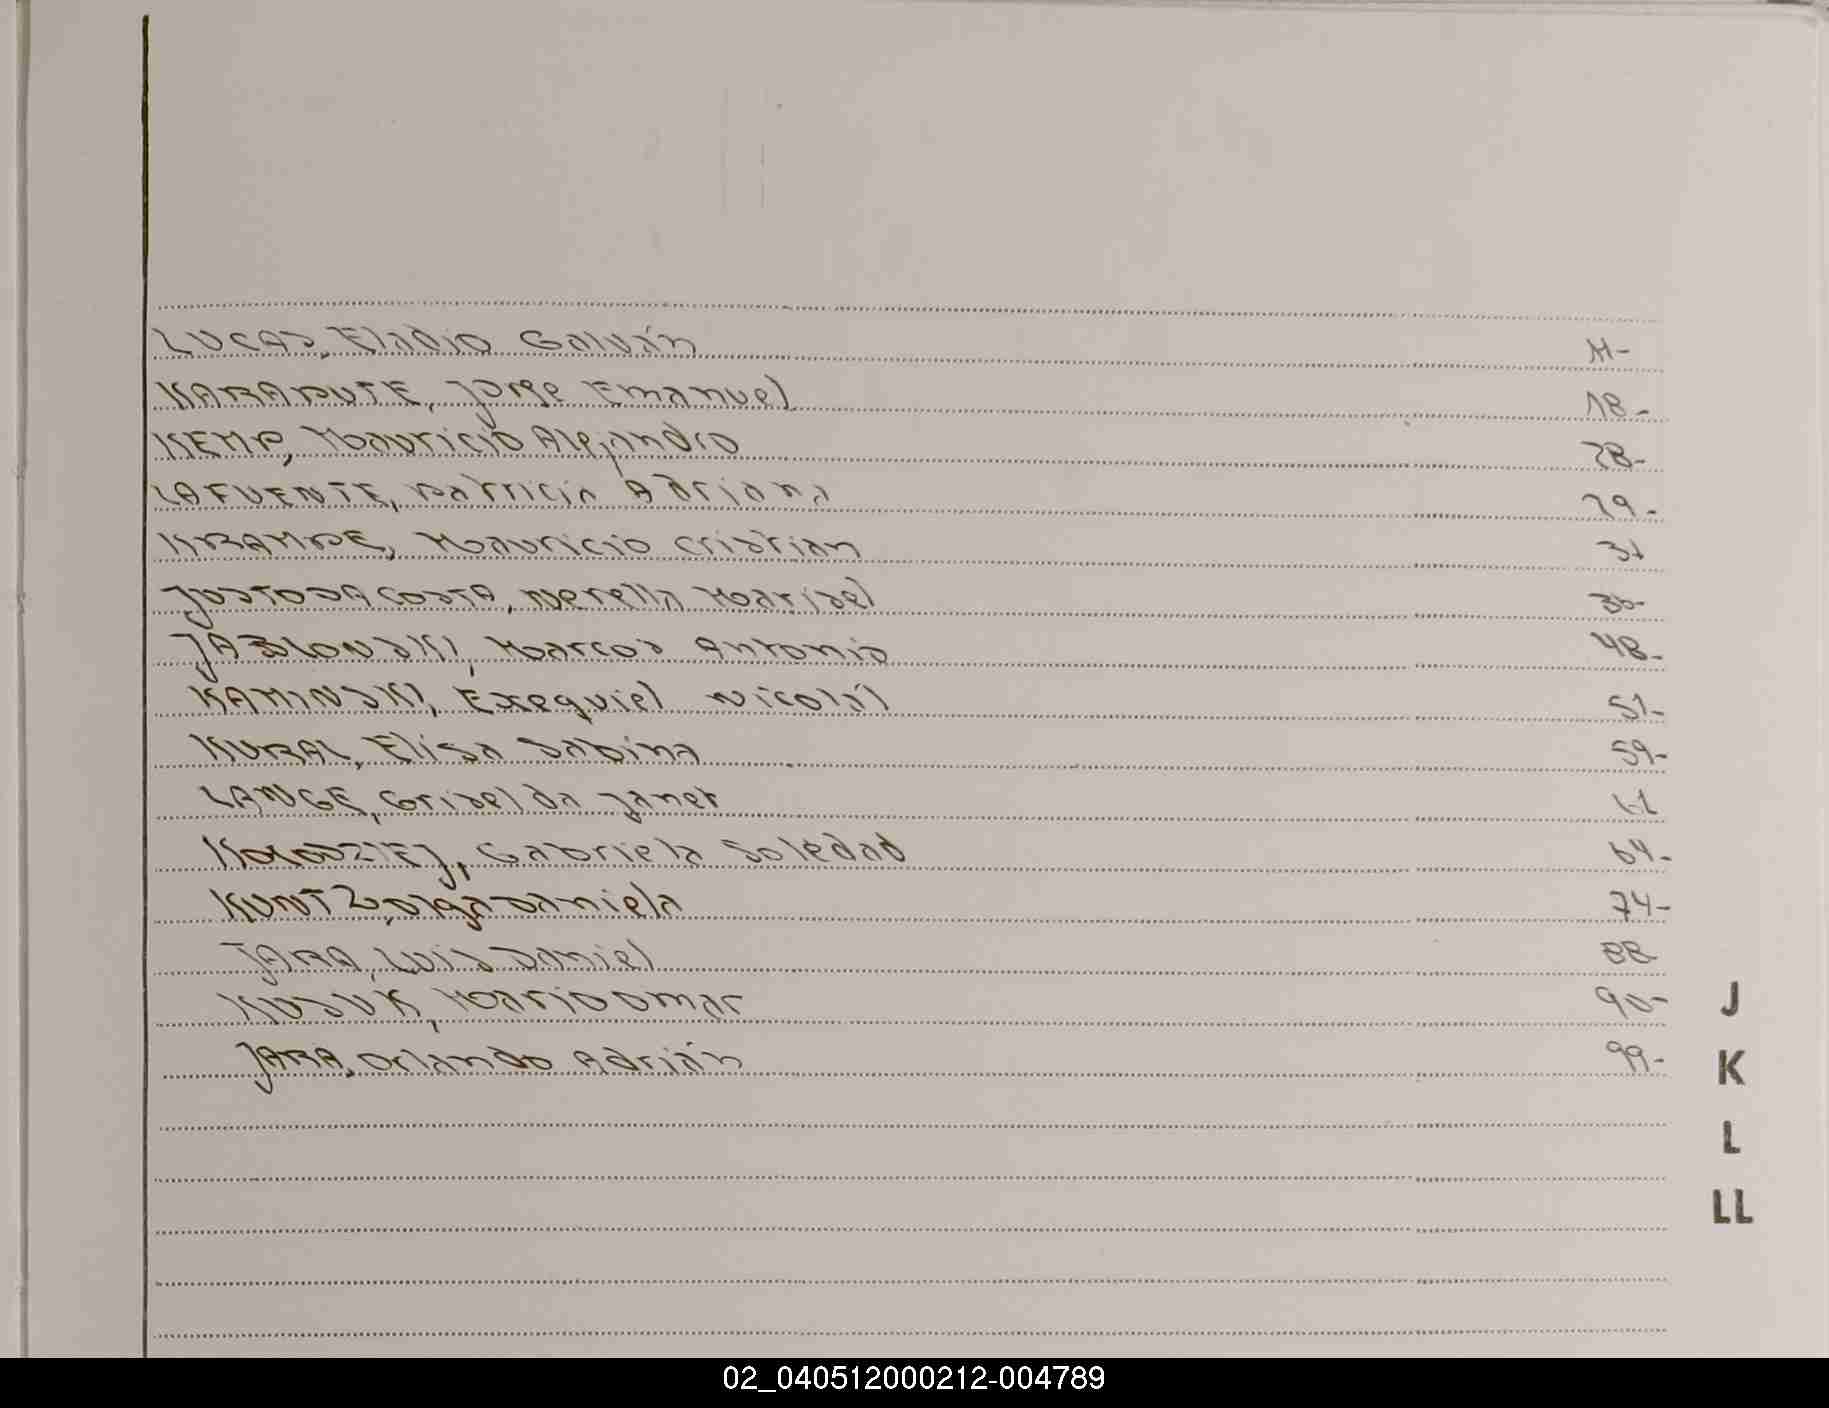 LUCAS, Eladio Galván 11-
KARAPUTE, Jorge Emanuel 18-
KEMP, Mauricio Alejandro 28-
LAFUENTE, Patricia Adriana 29-
KRAMPE, Mauricio Cristian 31
JUSTOSACOSTA, Nerella Marisel
JABLONSKI, Marcos Antonio 48-
KAMINSKI, Exequiel Nicolás 51-
KURAL, Elisa Sabina 59-
LANGE, Griselda Janet 61
KOLODZIEJ, Gabriela Soledad 64-
KUNTZ, Olga Daniela 74-
JARA, Luis Daniel 88
KUSUK, Mario Omar 90-
JARA, Orlando Adrián 99-
J
K
L
LL
02_040512000212-004789